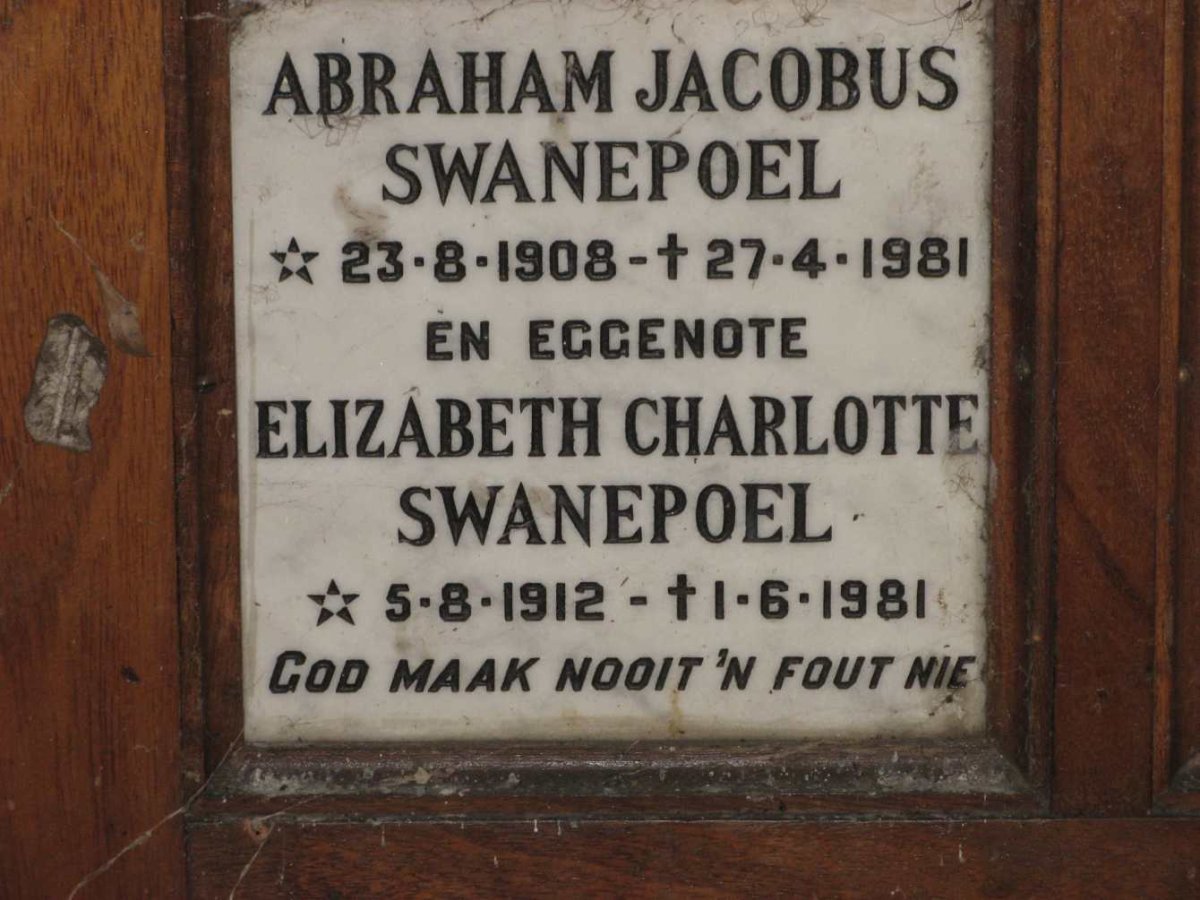 ABRAHAM JACOBUS
SWANEPOEL
☆ 23·8·1908 - † 27·4·1981
EN EGGENOTE
ELIZABETH CHARLOTTE
SWANEPOEL
☆ 5·8·1912 - † 1·6·1981
GOD MAAK NOOIT 'N FOUT NIE